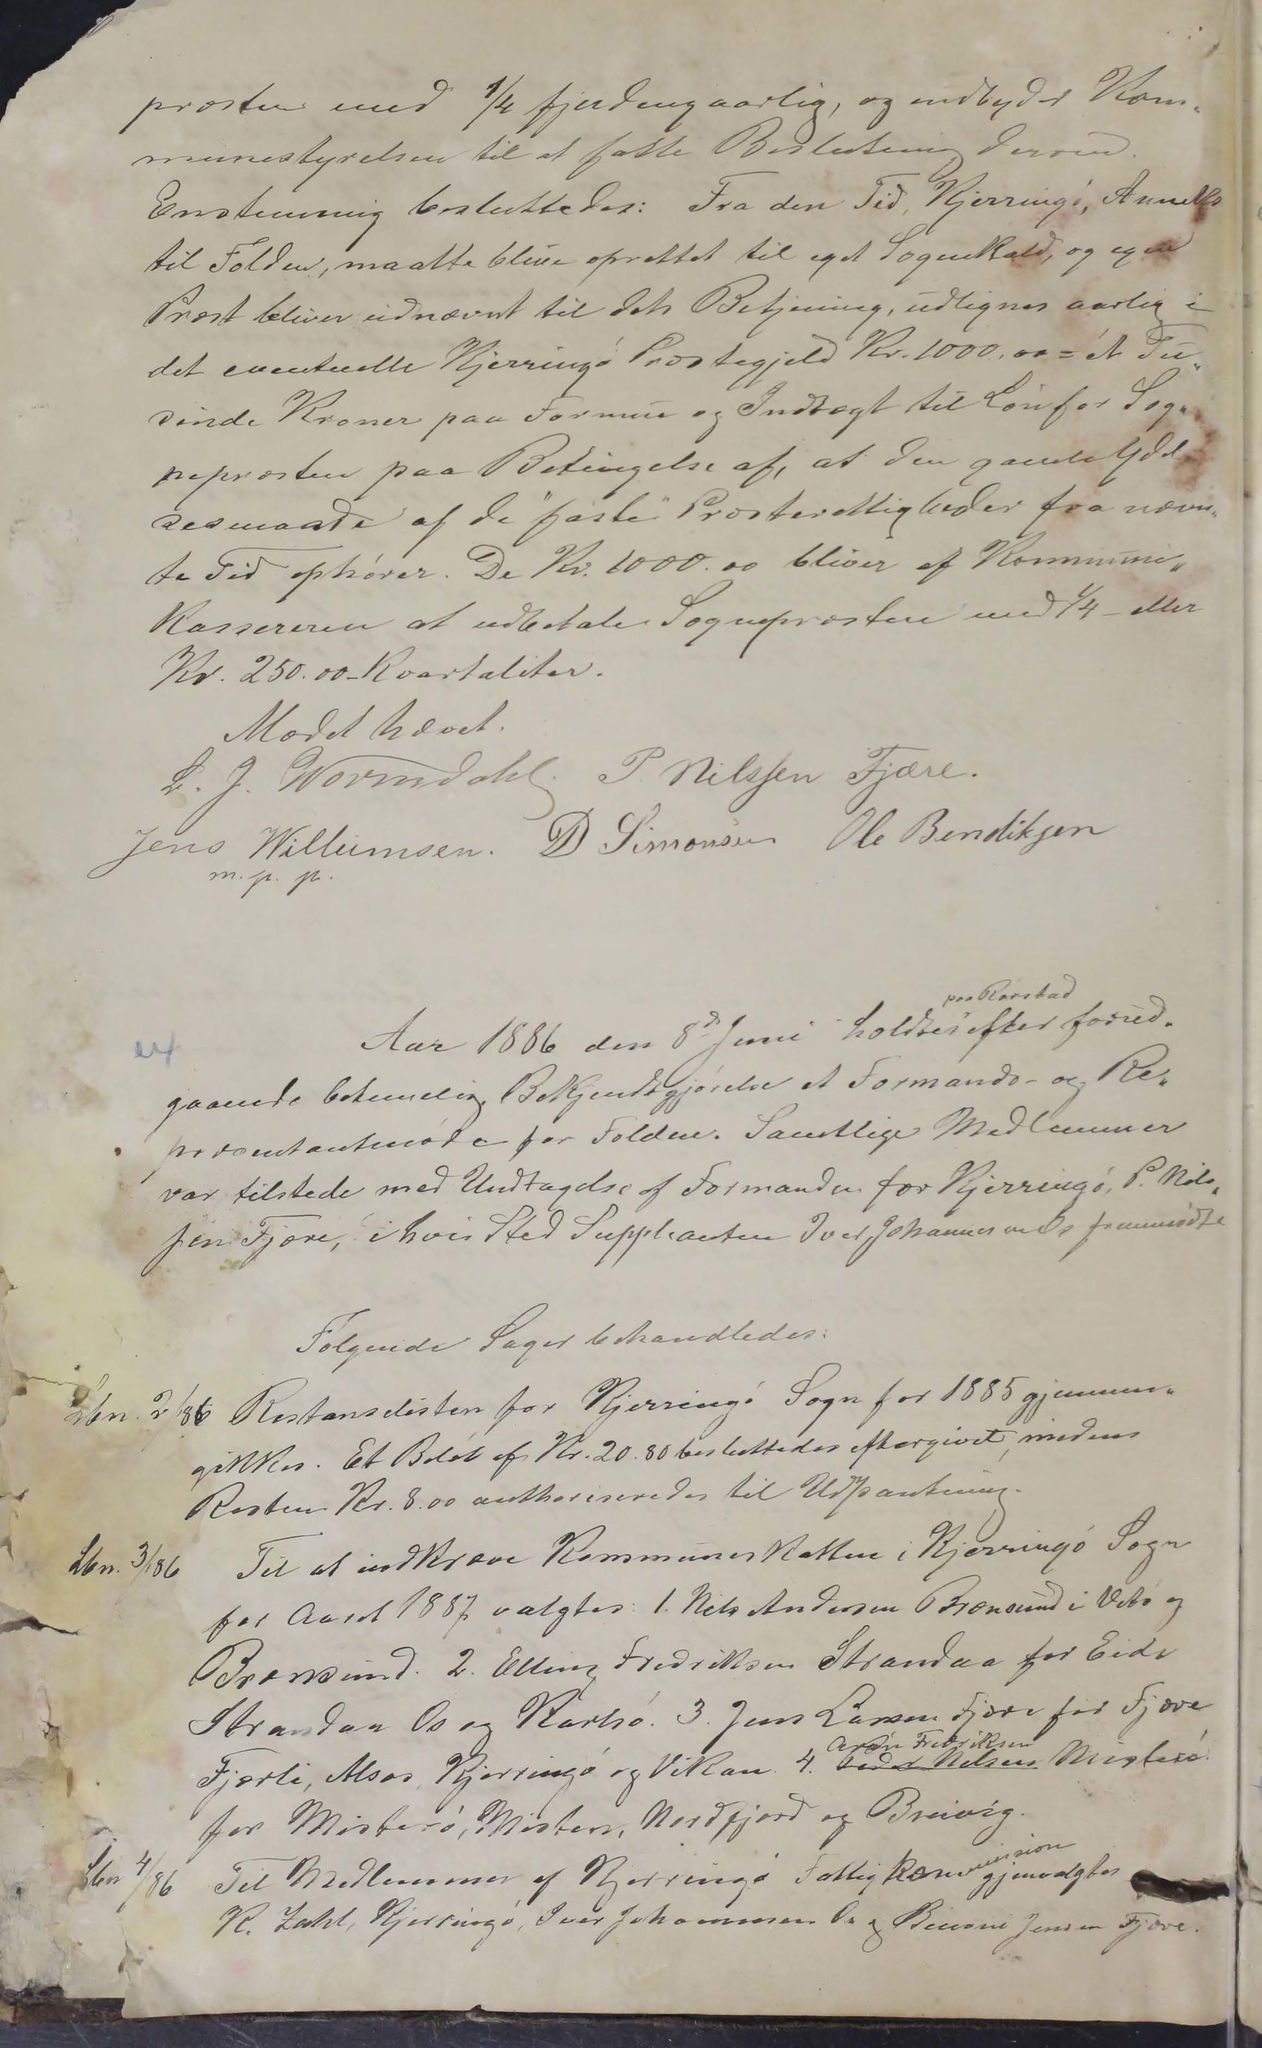 præsten med 1/4 fjerdengaarlig, og indbyder Kom-
munestyrelsen til at fatte Beslutning derom.
Enstemmig besluttedes: Fra den Tid, Kjerringö, Annex
til Folden, maatte blive oprettet til eget Sognekald, og egen
Præst bliver udnævnt til dets Betjening, udlignes aarlig i
det eventuelle Kjerringö Præstegjeld Kr. 1000.00 = et Tu-
sinde Kroner paa Formue og Indtægt til Løn for Sog-
nepræsten paa Betingelse af, at den gamle Ydel
sesmaade af de "faste" Præsterettigheder fra nævn-
te Tid ophörer. De Kr. 1000.00 bliver af Kommune-
Kassereren at udbetale Sognepræsten med 1/4 - eller
Kr. 250.00 - Kvartaliter.
Mødet hævet.
L. J. Wormdahl. P. Nilssen Fjære.
Jens Willumsen. D Simonsen Ole Bendiksen
m. p. p.
paa Rørstad
Aar 1886 den 8de Juni holdtes efter forud-
gaaende betimelig Bekjendtgjörelse et Formands- og Re-
præsentantmöde for Folden. Samtlige Medlemmer
var tilstede med Undtagelse af Formanden for Kjerringö, P. Nils-
sen Fjære, i hvis Sted Suppleanten Iver Johannesen Os fremmödte
Fölgende Sager behandledes:
Lbn. 2/86 Restanselisten for Kjerringö Sogn for 1885 gjennem-
gikkes. Et Belöb af Kr. 20.80 besluttedes eftergivet, medens
Resten Kr. 8.00 authoriseredes til Udpantning.
Lbn. 3/86 Til at indkræve Kommuneskatten i Kjerringö Sogn
for Aaret 1887 valgtes: 1. Nils Andersen Brænsund i Vetö og
Brænsund. 2. Elling Fredriksen Strandaa for Eide
Strandaa Os og Karlsö. 3. Jens Larsen Fjære for Fjære
Arön Fredriksen
Fjærli, Alsos, Kjerringö og Vikan. 4. Nilsen Misterö
for Misterö, Misten, Nordfjord og Breivig.
Lbn 4/86 Til Medlemmer af Kjerringö Fattigkommission gjenvalgtes
K. Zahl, Kjerringö, Iver Johannesen Os og Benoni Jensen Fjære.